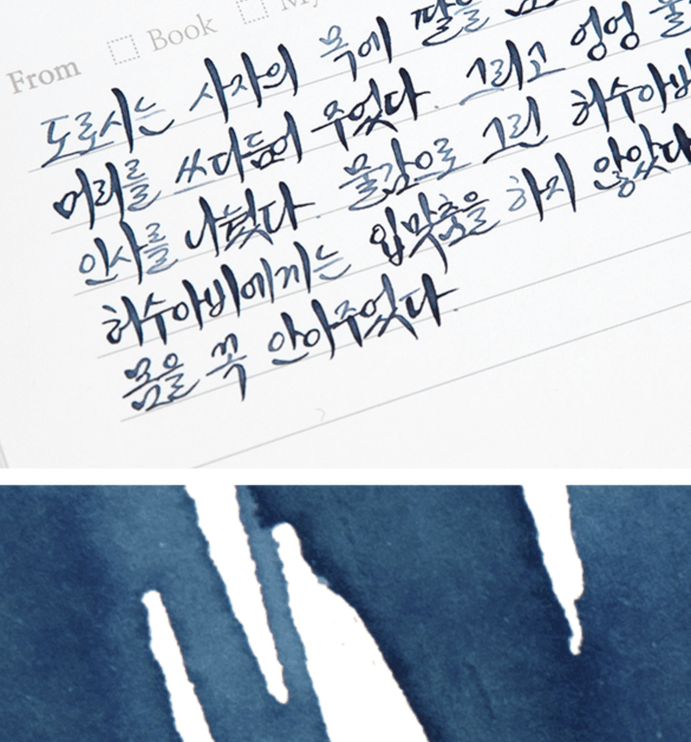 Book My
From
도로시는 사자의 목에 팔을
머리를 쓰다듬어 주었다. 그리고 엉엉 울
인사를 나눴다. 물감으로 그린 허수아비
허수아비에게는 입맞춤을 하지 않았다
몸을 꼭 안아주었다.